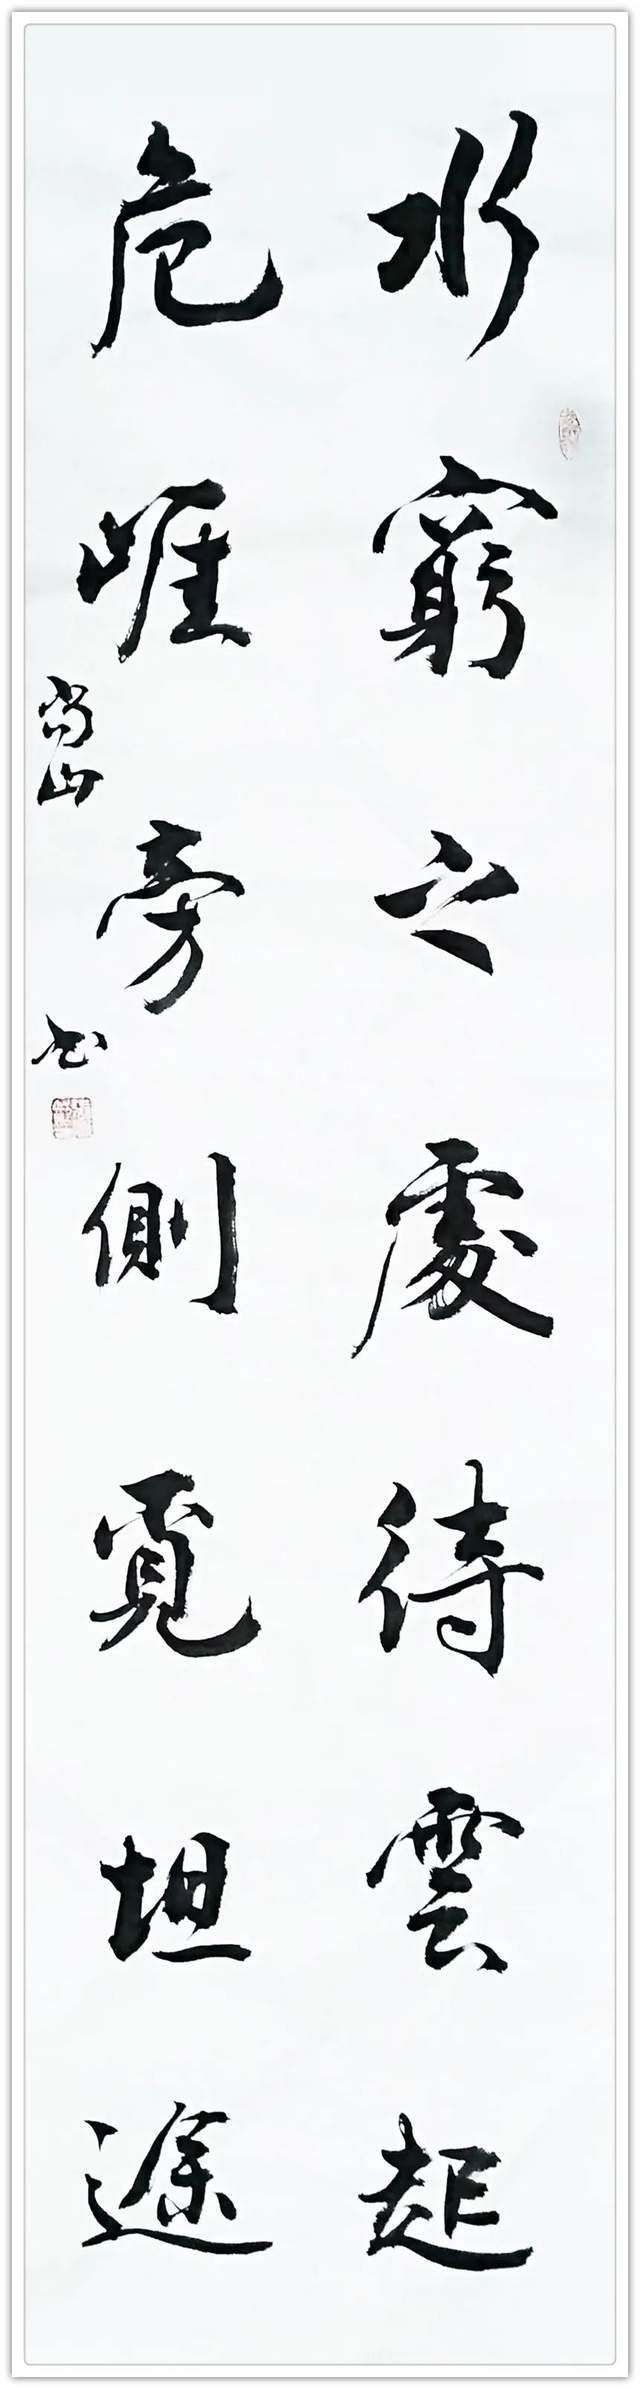 水窮之處待雲起
危崕旁側覓坦途
尚山 书